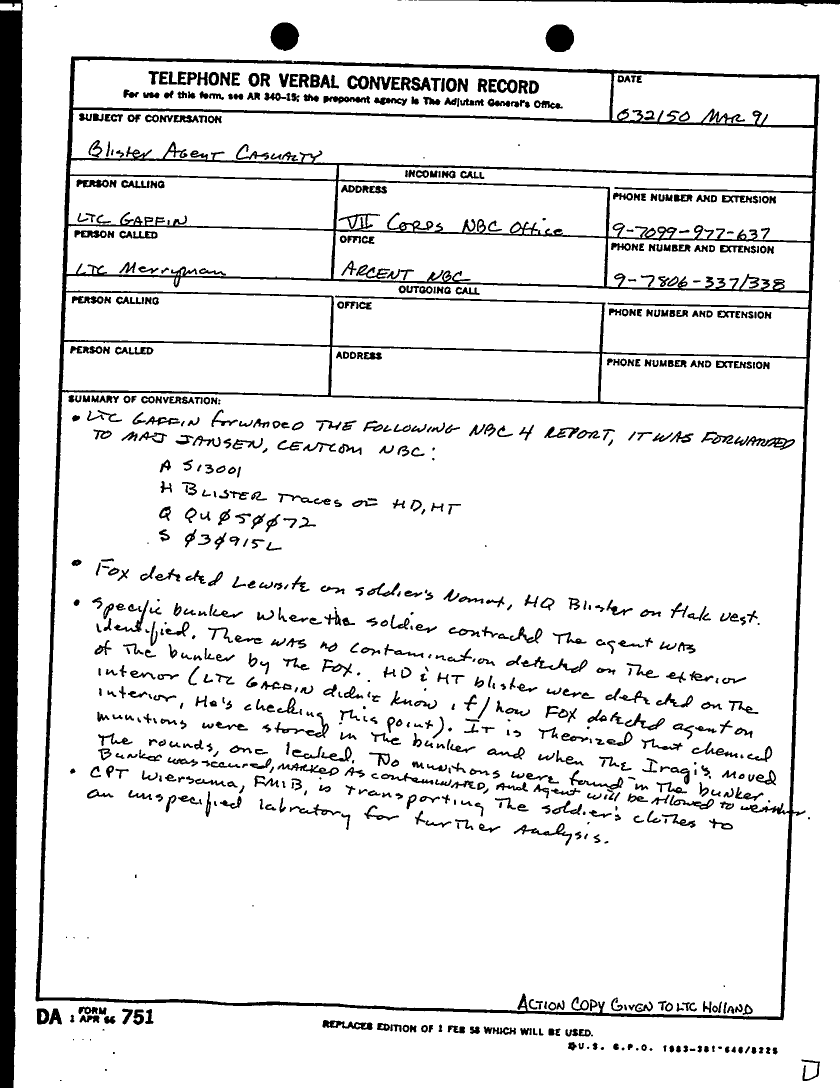 TELEPHONE OR VERBAL CONVERSATION RECORD
For use of this form, see AR 340-15; the proponent agency is The Adjutant General's Office.
DATE
032150 MAR 91
SUBJECT OF CONVERSATION
Blister Agent Casualty
INCOMING CALL
PERSON CALLING
LTC GAFFIN
ADDRESS
VII Corps NBC Office
PHONE NUMBER AND EXTENSION
9-7099-977-637
PERSON CALLED
LTC Merryman
OFFICE
ARCENT NBC
PHONE NUMBER AND EXTENSION
9-7806-337/338
OUTGOING CALL
PERSON CALLING
OFFICE
PHONE NUMBER AND EXTENSION
PERSON CALLED
ADDRESS
PHONE NUMBER AND EXTENSION
SUMMARY OF CONVERSATION:
• LTC GAFFIN forwarded THE FOLLOWING NBC 4 REPORT, IT WAS FORWARDED
TO MAJ JANSEN, CENTCOM NBC:
A 513001
H BLISTER Traces of HD, HT
Q QUØ5ØØ72
S Ø3Ø915L
• Fox detected Lewsite on soldier's Nomat, HQ Blister on flak vest.
• Specific bunker where the soldier contracted The agent was
identified. There was no contamination detected on The exterior
of The bunker by The Fox. HD & HT blister were detected on The
interior (LTC GAFFIN didn't know if/how FOX detected agent on
interior, He's checking This point). It is Theorized That chemical
munitions were stored in The bunker and when The Iraqi's moved
The rounds, one leaked. No munitions were found in The bunker.
Bunker was secured, marked As contaminated, And Agent will be Allowed to weather.
• CPT Wiersama, FMIB, is transporting The soldier's clothes to
an unspecified labratory for further Analysis.
ACTION COPY GIVEN TO LTC Holland
DA FORM 1 APR 66 751
REPLACES EDITION OF 1 FEB 58 WHICH WILL BE USED.
U.S. G.P.O. 1983-381-646/8225